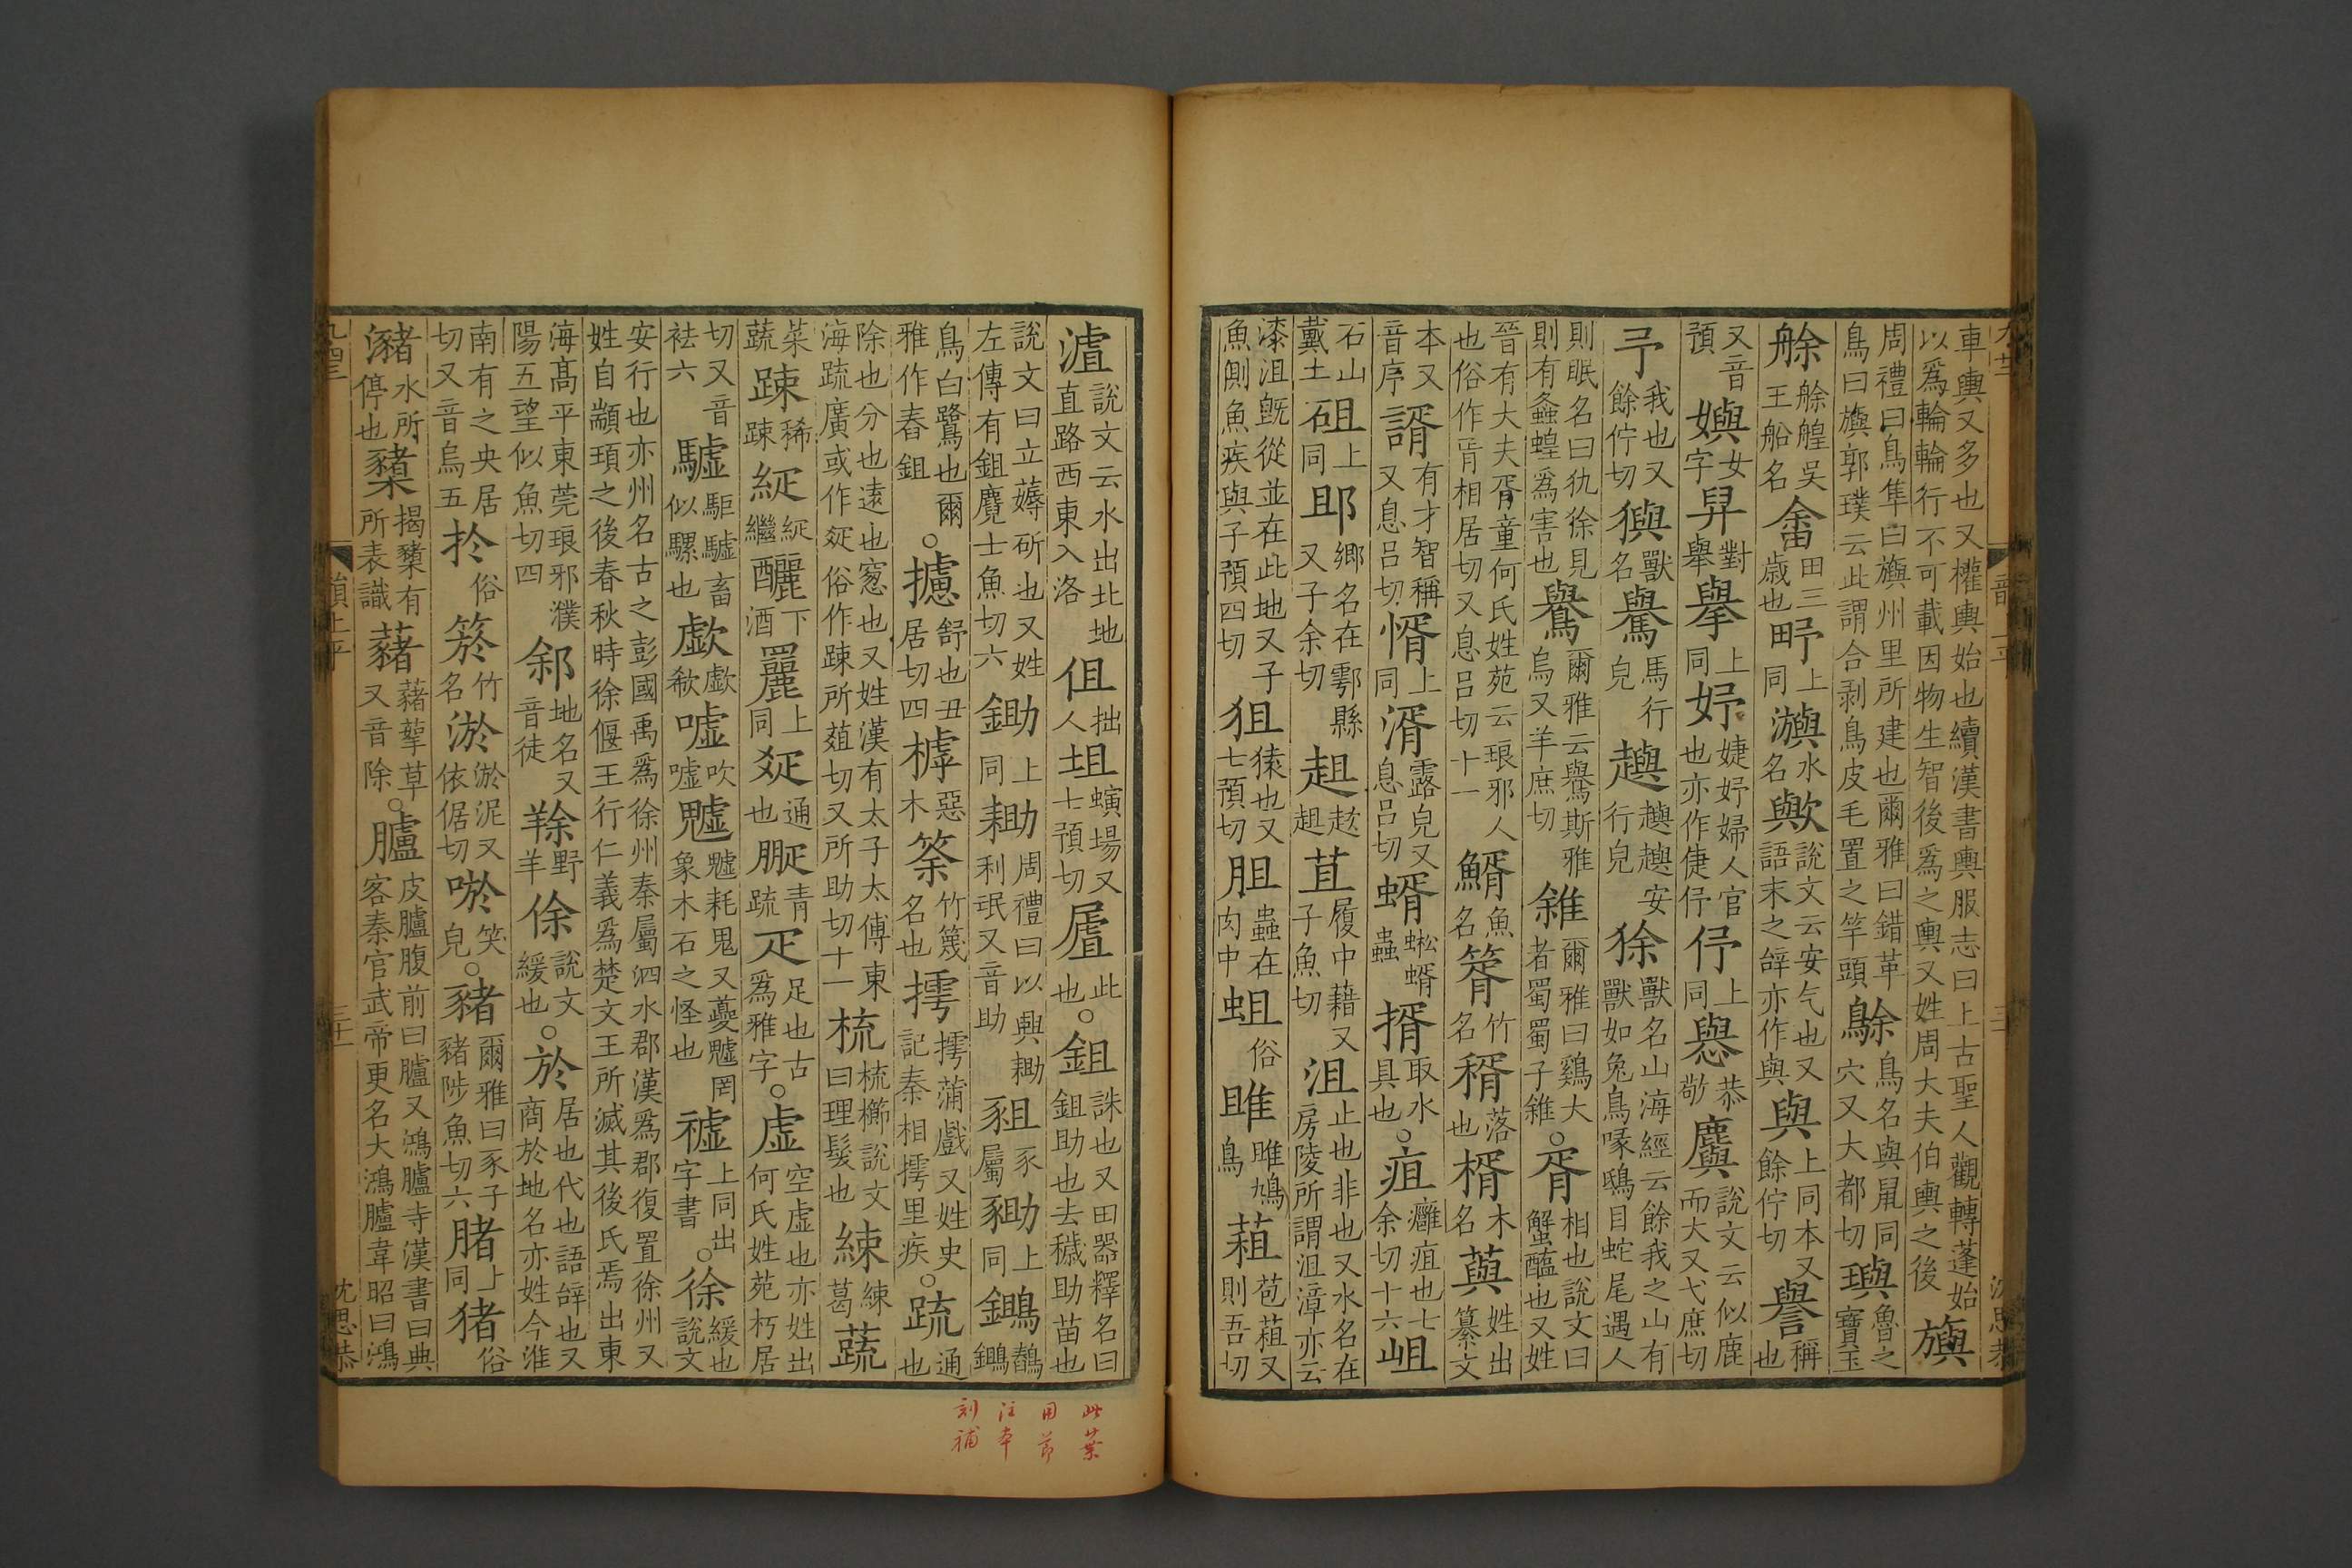 車輿又多也又權輿始也續漢書輿服志曰上古聖人觀轉蓬始以爲輪輪行不可載因物生智後爲之輿又姓周大夫伯輿之後旟
周禮曰鳥隼曰旟州里所建也爾雅曰錯革鳥曰旟郭璞云此謂合剥鳥皮毛置之竿頭鵌鳥名與鼵同穴又大都切璵魯之寶玉
艅艅艎吳王船名畬田三歲也㽣上同㶛水名歟說文云安气也又語末之辝亦作與與上同本又餘佇切譽稱也
又音預嬩女字舁對舉擧上同妤婕妤婦人官也亦作倢伃伃上同㦛恭敬䴡說文云似鹿而大又弋庶切
予我也又餘佇切獸名馬行皃安行皃狳獸名山海經云餘我之山有獸如兔鳥喙鴟目蛇尾遇人
則眠名曰犰狳見則有螽蝗爲害也鸒爾雅云鸒斯雅烏又羊庶切雓爾雅曰鷄大者蜀蜀子雓○胥相也說文曰蟹醢也又姓
晉有大夫胥童何氏姓苑云琅邪人也俗作相居切又息呂切十一魚名竹名稰落也楈木名藇姓出纂文
本又音序諝有才智稱又息呂切㥠上同湑露皃又息呂切蝑蜙蝑蟲揟取水具也○疽癰疽也七余切十六岨
石山戴土砠上同䢸鄉名在鄠縣又子余切趄趑趄苴履中藉又子魚切沮止也非也又水名在房陵所謂沮漳亦云
漆沮旣從並在此地又子魚側魚疾與子預四切狙猨也又七預切胆蟲在肉中蛆俗雎雎鳩鳥蒩苞蒩又則吾切
瀘說文云水出北地直路西東入洛伹拙人坥螾場又七預切此也○鉏誅也又田器釋名曰鉏助也去穢助苗也
說文曰立薅斫也又姓左傳有鉏麑士魚切六鋤上同耡周禮曰以興耡利甿又音助豠豕屬上同䳱
鳥白鷺也爾雅作舂鉏○攄舒也丑居切四樗惡木筡竹篾名也摴摴蒲戲又姓史記秦相摴里疾○疏通也
除也分也遠也窻也又姓漢有太子太傅東海疏廣或作疎俗作踈所葅切又所助切十一梳梳櫛說文曰理髮也練練葛蔬
菜蔬踈稀踈釃下酒上同通也疏疋足也古爲雅字○虛空虛也亦姓出何氏姓苑朽居
切又音袪六驉駏驉畜似騾也歔歔欷噓吹噓魖魖耗鬼又夔魖罔象木石之怪也上同出字書○徐緩也說文
安行也亦州名古之彭國禹爲徐州秦屬泗水郡漢爲郡復置徐州又姓自顓頊之後春秋時徐偃王行仁義爲楚文王所滅其後氏焉出東
海高平東莞琅邪濮陽五望似魚切四䣄地名又音徒䍱野羊俆說文緩也○於居也代也語辝也又商於地名亦姓今淮
南有之央居切又音烏五扵俗箊竹名淤淤泥又依倨切唹笑皃○豬爾雅曰豕子豬陟魚切六䐗上同猪俗
瀦水所停也櫫揭櫫有所表識藸藸蒘草又音除○臚皮臚腹前曰臚又鴻臚寺漢書曰典客秦官武帝更名大鴻臚韋昭曰鴻
此葉
用節
注本
刻補